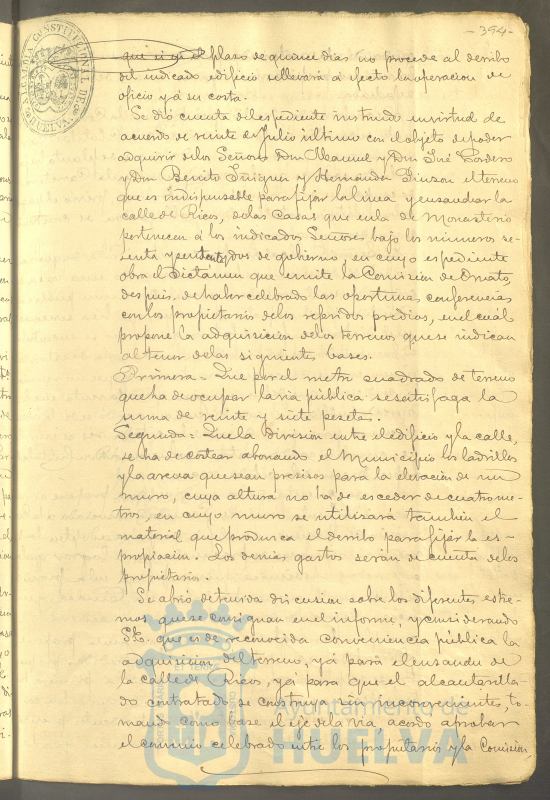 -394-
ALCALDIA CONSTITUCIONAL DE HUELVA
que si en el plazo de quince dias no procede al derribo
del indicado edificio se llevará á efecto la operacion de
oficio y á su costa.
Se dió cuenta del espediente instruido en virtud de
acuerdo de veinte de Julio último con el objeto de poder
adquirir de los Señores Don Manuel y Don José Cordero
y Don Benito Iñiguez y Hernandez Pinzon el terreno
que es indispensable para fijar la linea y ensanchar la
calle de Ricos, de las Casas que en la de Monasterio
pertenecen á los indicados Señores bajo los numeros se-
senta y sesenta y dos de gobierno, en cuyo espediente
obra el dictámen que emite la Comision de Ornato,
despues de haber celebrado las oportunas conferencias
con los propietarios de los referidos predios, en el cuál
propone la adquisicion de los terrenos que se indican
al tenor de las siguientes bases.
Primera = Que por el metro cuadrado de terreno
que ha de ocupar la via pública se satisfaga la
suma de veinte y siete pesetas.
Segunda = Que la division entre el edificio y la calle,
se ha de costear abonando el Municipio los ladrillos
y la arena que sean precisos para la elevacion de un
muro, cuya altura no ha de esceder de cuatro me-
tros, en cuyo muro se utilizará tambien el
material que produzca el derribo para fijar la es-
propiacion. Los demás gastos serán de cuenta de los
propietarios.
Se abrió detenida discusion sobre los diferentes estre-
mos que se consignan en el informe, y considerando
S.E. que es de reconocida conveniencia pública la
adquisicion del terreno, yá para el ensanche de
la calle de Ricos, yá para que el alcantarilla-
do contratado se construya sin inconvenientes, to-
mando como base el eje de la via, acordó aprobar
el convenio celebrado entre los propietarios y la Comision
Ayuntamiento de
HUELVA